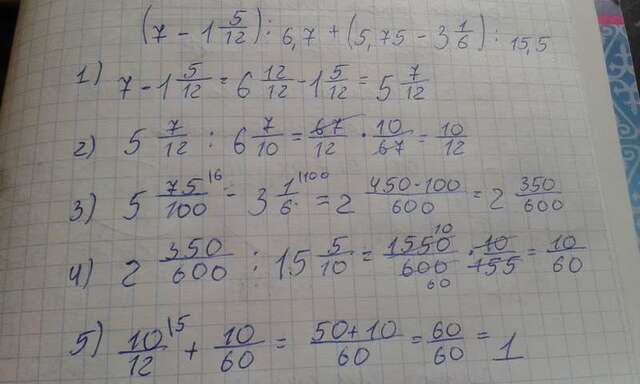 (7 - 1 5/12) : 6,7 + (5,75 - 3 1/6) : 15,5
1) 7 - 1 5/12 = 6 12/12 - 1 5/12 = 5 7/12
2) 5 7/12 : 6 7/10 = 67/12 · 10/67 = 10/12
3) 5 75/100 |6 - 3 1/6 |100 = 2 450-100/600 = 2 350/600
4) 2 350/600 : 15 5/10 = 1550/600 10/60 · 10/155 = 10/60
5) 10/12 |5 + 10/60 = 50+10/60 = 60/60 = 1